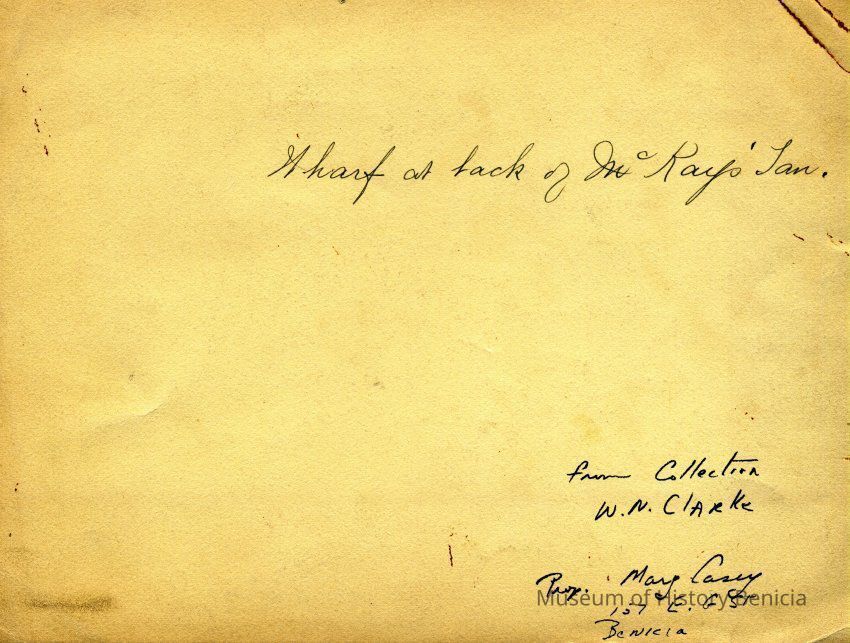 Wharf at back of McKay's Tan.
from Collection
W.N. Clarke
Prop. Mary Casey
Museum of History Benicia
137 E. E St
Benicia